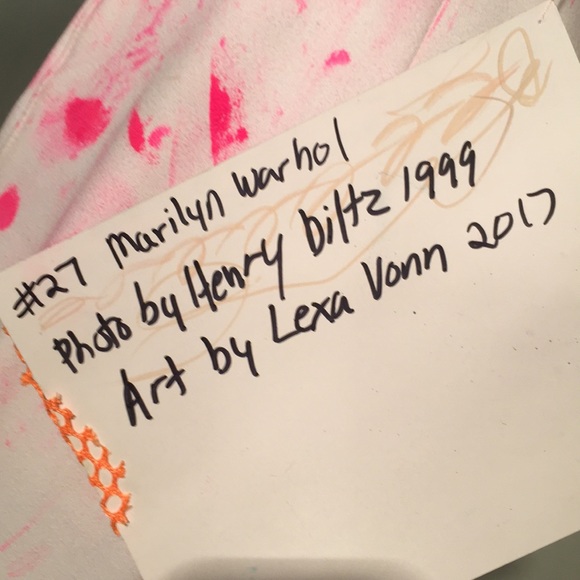 #27 Marilyn Warhol
Photo by Henry Diltz 1999
Art by Lexa Vonn 2017